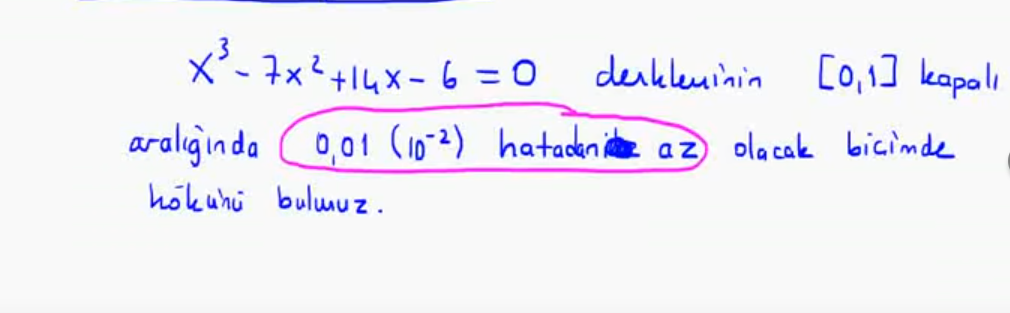 x³ - 7x² + 14x - 6 = 0 denkleminin [0,1] kapalı
aralığında 0,01 (10⁻²) hatadan az olacak biçimde
kökünü bulunuz.